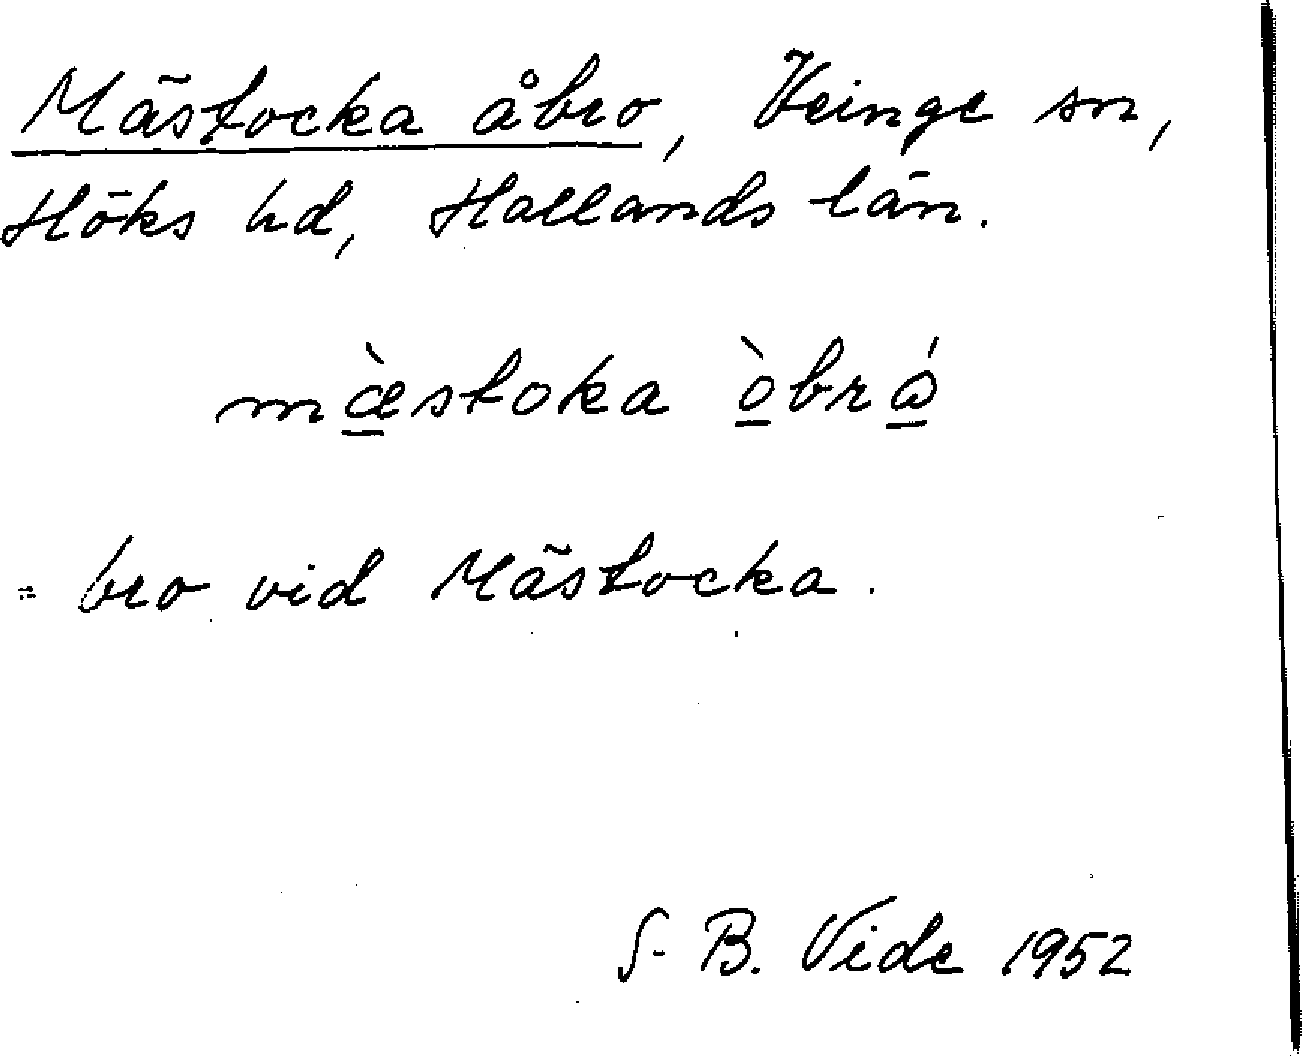 Mästocka åbro, Veinge sn,
Höks hd, Hallands län.
mæ̲̀stoka ò̲brώ̲
= bro vid Mästocka.
S-B. Vide 1952